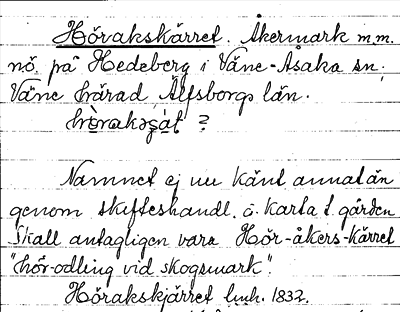 Hörakskärret. Åkermark m.m.
nö. på Hedeberg i Väne-Åsaka sn,
Väne härad, Älfsborgs län.
?
Namnet ej nu känt annat än
genom skifteshandl. o. karta t. gården
Skall antagligen vara Hör-åkers-kärret
"hör-odling vid skogsmark".
Hörakskjärret lmh. 1832.